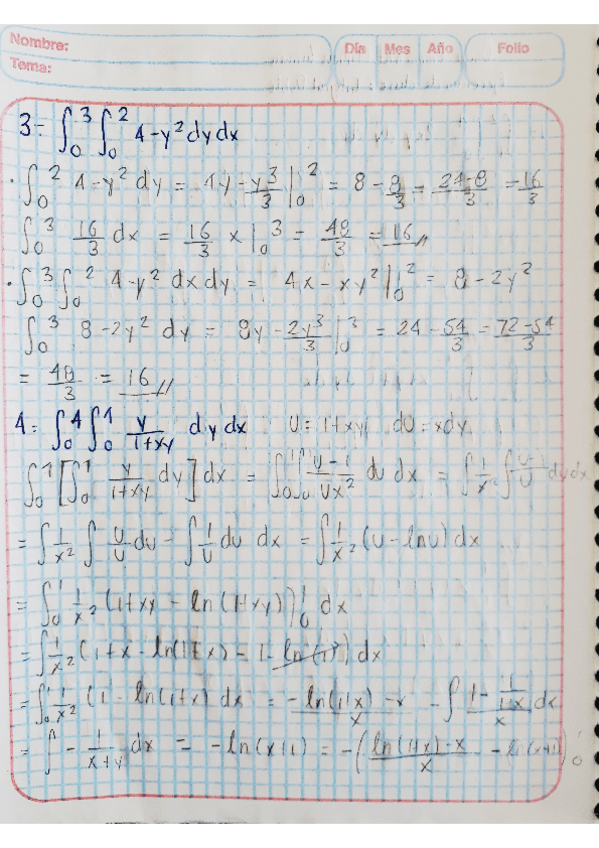 Nombre: Día Mes Año Folio
Tema:
3= ∫₀³ ∫₀² 4-y² dy dx
• ∫₀² 4-y² dy = 4y - y³/3 |₀² = 8 - 8/3 = 24-8/3 = 16/3
∫₀³ 16/3 dx = 16/3 x |₀³ = 48/3 = 16
• ∫₀³ ∫₀² 4-y² dx dy = 4x - xy² |₀² = 8-2y²
∫₀³ 8-2y² dy = 8y - 2y³/3 |₀³ = 24 - 54/3 = 72-54/3
= 48/3 = 16
4= ∫₀⁴ ∫₀¹ y/1+xy dy dx U=1+xy dU=xdy
∫₀¹ [∫₀¹ y/1+xy dy] dx = ∫₀¹∫₀¹ U-1/Ux² dU dx = ∫ 1/x² ∫ U-1/U dU dx
= ∫ 1/x² ∫ U/U dU - ∫ 1/U dU dx = ∫ 1/x² (U-lnU) dx
= ∫₀¹ 1/x² (1+xy - ln(1+xy))₀¹ dx
= ∫ 1/x² (1+x - ln(1+x) - 1 - ln(1)) dx
= ∫₀¹ 1/x² (1 - ln(1+x) dx = -ln(1+x)-x/x - ∫ 1 - 1/1+x/x dx
= ∫ - 1/x+y dx = -ln(x+1) = -(ln(1+x)-x/x - ln(x+1))₀¹